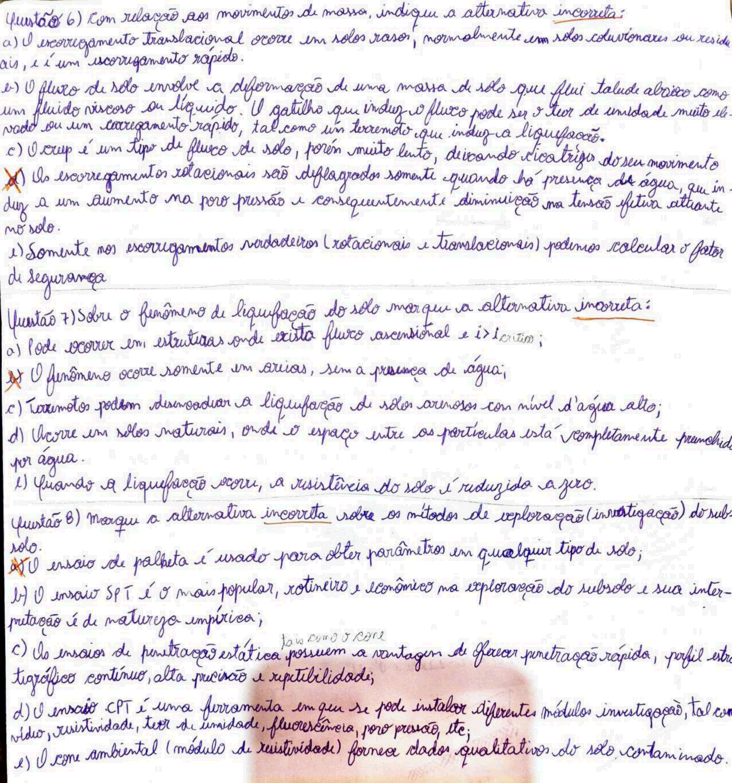 Questão 6) Com relação aos movimentos de massa, indique a alternativa incorreta:
a) O escorregamento translacional ocorre em solos rasos, normalmente em solos coluvionares ou residu-
ais, e é um escorregamento rápido.
b) O fluxo de solo envolve a deformação de uma massa de solo que flui talude abaixo como
um fluido viscoso ou líquido. O gatilho que induz o fluxo pode ser o teor de umidade muito ele-
vado ou um carregamento rápido, tal como um terremoto que induz a liquefação.
c) O creep é um tipo de fluxo de solo, porém muito lento, deixando cicatrizes do seu movimento
d) Os escorregamentos rotacionais são deflagrados somente quando há presença de água, que in-
duz a um aumento na poro pressão e consequentemente diminuição na tensão efetiva atuante
no solo.
e) Somente nos escorregamentos verdadeiros (rotacionais e translacionais) podemos calcular o fator
de segurança
Questão 7) Sobre o fenômeno de liquefação do solo marque a alternativa incorreta:
a) Pode ocorrer em estruturas onde exista fluxo ascensional e i>i crítico;
b) O fenômeno ocorre somente em areias, sem a presença de água;
c) Terremotos podem desencadear a liquefação de solos arenosos com nível d'água alto;
d) Ocorre em solos naturais, onde o espaço entre as partículas está completamente preenchido
por água.
e) Quando a liquefação ocorre, a resistência do solo é reduzida a zero.
Questão 8) Marque a alternativa incorreta sobre os métodos de exploração (investigação) do sub-
solo.
a) O ensaio de palheta é usado para obter parâmetros em qualquer tipo de solo;
b) O ensaio SPT é o mais popular, rotineiro e econômico na exploração do subsolo e sua inter-
pretação é de natureza empírica;
tais como o cone
c) Os ensaios de penetração estática possuem a vantagem de oferecer penetração rápida, perfil estra-
tigráfico contínuo, alta precisão e repetibilidade;
d) O ensaio CPT é uma ferramenta em que se pode instalar diferentes módulos investigação, tal como
vídeo, resistividade, teor de umidade, fluorescência, poro pressão, etc;
e) O cone ambiental (módulo de resistividade) fornece dados qualitativos do solo contaminado.